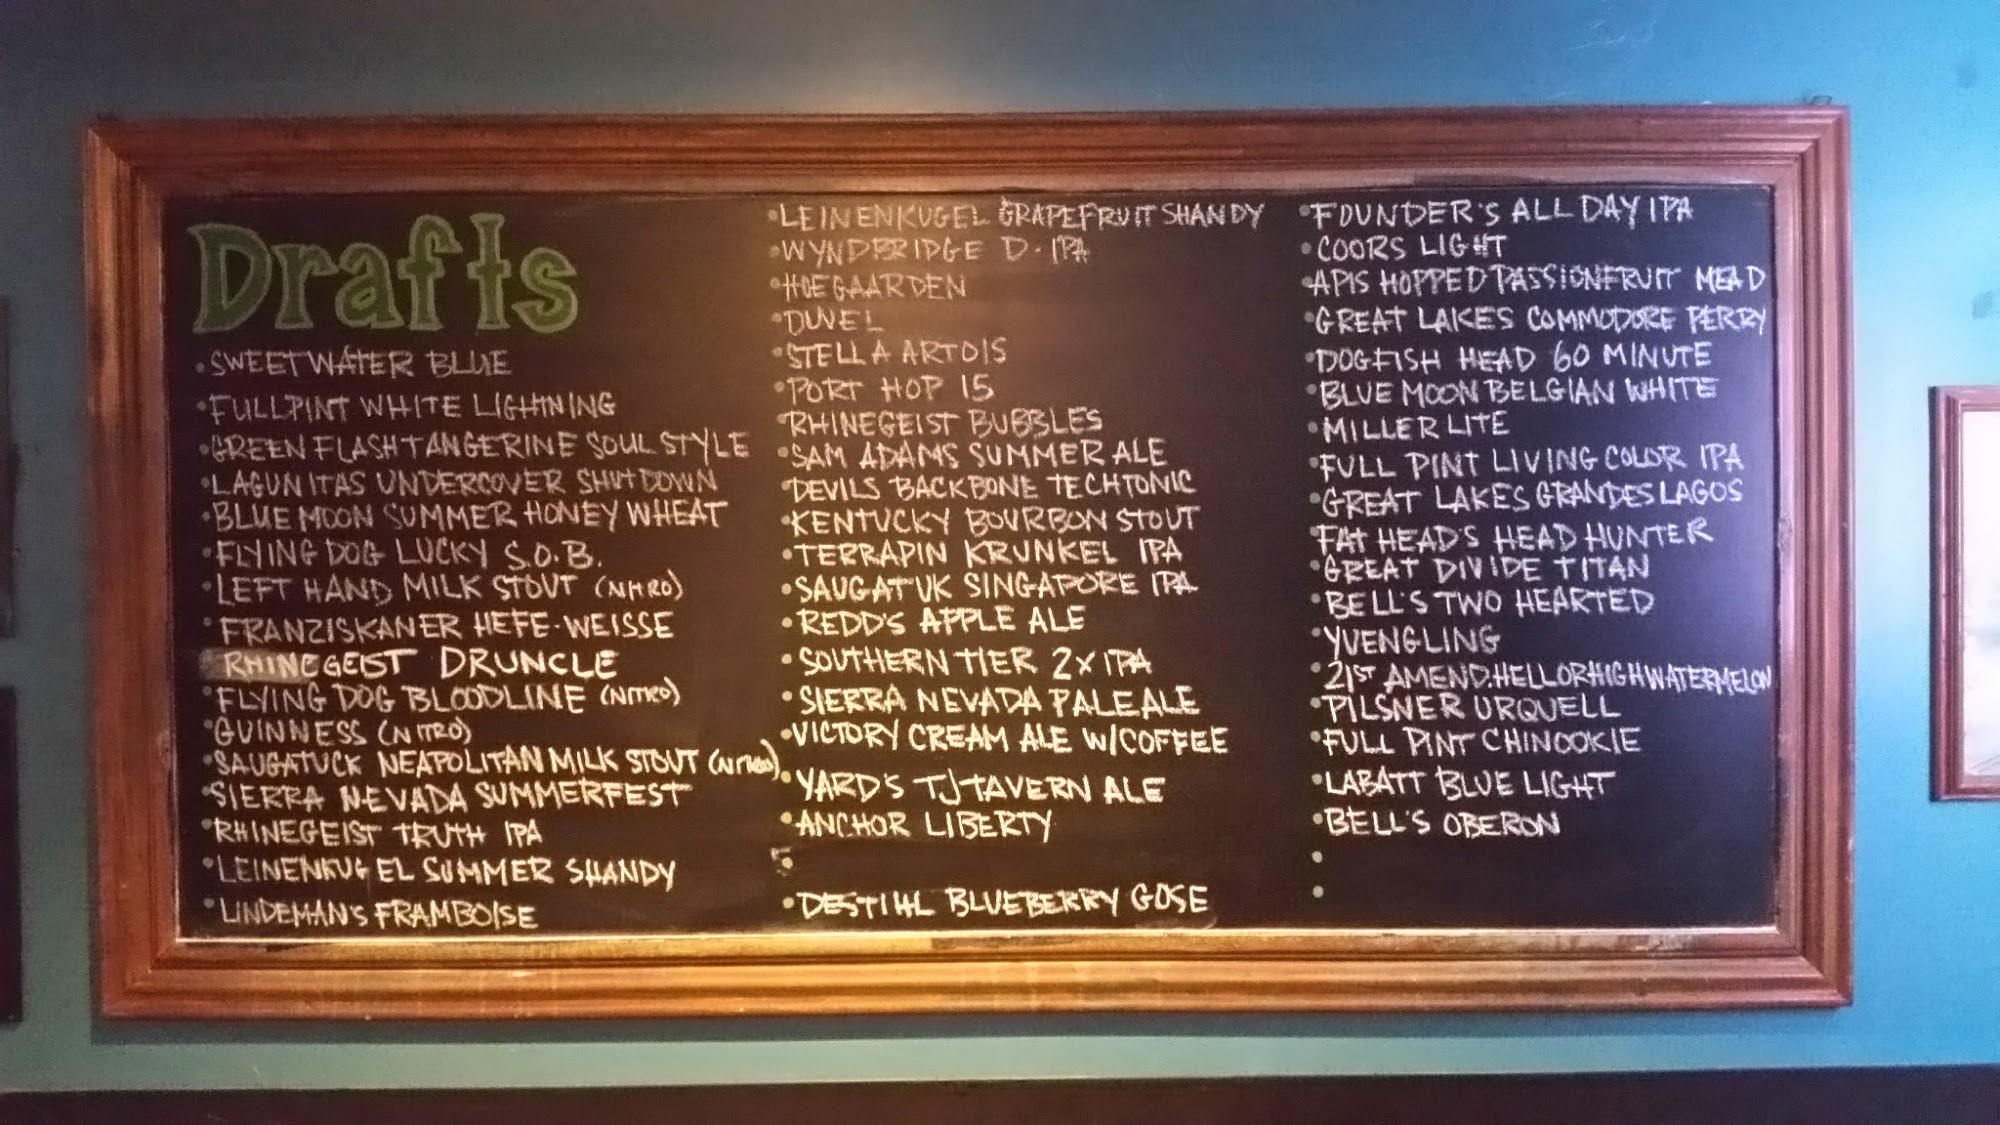 Drafts
• SWEETWATER BLUE
• FULLPINT WHITE LIGHTNING
• GREEN FLASH TANGERINE SOUL STYLE
• LAGUNITAS UNDERCOVER SHUTDOWN
• BLUE MOON SUMMER HONEY WHEAT
• FLYING DOG LUCKY S.O.B.
• LEFT HAND MILK STOUT (NITRO)
• FRANZISKANER HEFE-WEISSE
RHINEGEIST DRUNCLE
• FLYING DOG BLOODLINE (NITRO)
• GUINNESS (NITRO)
• SAUGATUCK NEAPOLITAN MILK STOUT (NITRO)
• SIERRA NEVADA SUMMERFEST
• RHINEGEIST TRUTH IPA
• LEINENKUGEL SUMMER SHANDY
• LINDEMAN'S FRAMBOISE
• LEINENKUGEL GRAPEFRUIT SHANDY
• WYNDBRIDGE D. IPA
• HOEGAARDEN
• DUVEL
• STELLA ARTOIS
• PORT HOP 15
• RHINEGEIST BUBBLES
• SAM ADAMS SUMMER ALE
• DEVILS BACKBONE TECHTONIC
• KENTUCKY BOURBON STOUT
• TERRAPIN KRUNKEL IPA
• SAUGATUK SINGAPORE IPA
• REDD'S APPLE ALE
• SOUTHERN TIER 2X IPA
• SIERRA NEVADA PALE ALE
• VICTORY CREAM ALE W/COFFEE
• YARD'S TJ TAVERN ALE
• ANCHOR LIBERTY
•
• DESTIHL BLUEBERRY GOSE
• FOUNDER'S ALL DAY IPA
• COORS LIGHT
• APIS HOPPED PASSIONFRUIT MEAD
• GREAT LAKES COMMODORE PERRY
• DOGFISH HEAD 60 MINUTE
• BLUE MOON BELGIAN WHITE
• MILLER LITE
• FULL PINT LIVING COLOR IPA
• GREAT LAKES GRANDES LAGOS
• FAT HEAD'S HEAD HUNTER
• GREAT DIVIDE TITAN
• BELL'S TWO HEARTED
• YUENGLING
• 21ST AMEND. HELL OR HIGH WATERMELON
• PILSNER URQUELL
• FULL PINT CHINOOKIE
• LABATT BLUE LIGHT
• BELL'S OBERON
•
•